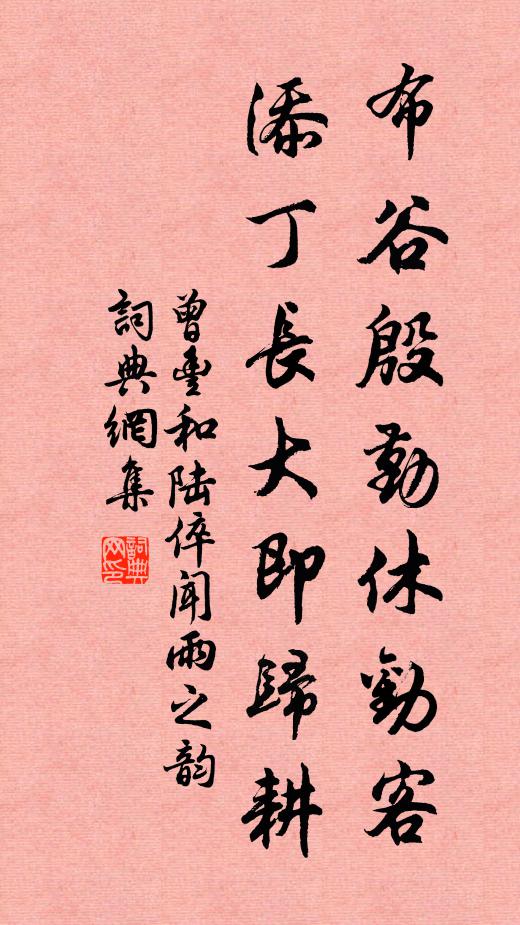 布谷殷勤休勸客
添丁長大即歸耕
曾豊和陆倅闻雨之韵
詞典網集
詞典网印